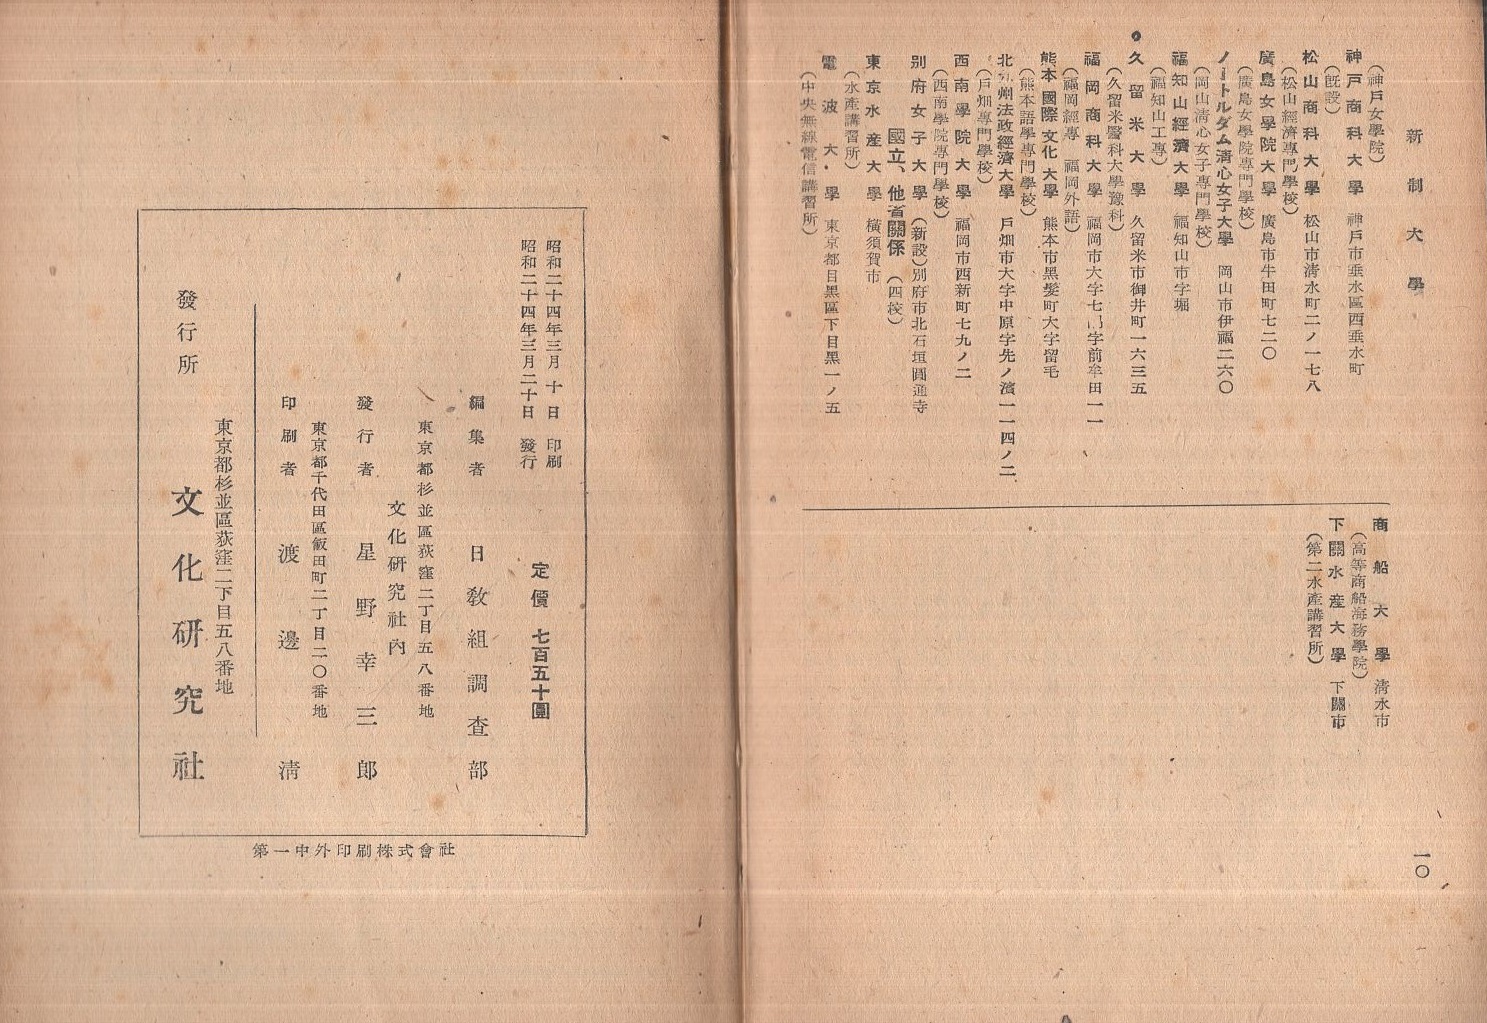 新制大學
(神戸女學院)
神戸商科大學 神戸市垂水區西垂水町
(既設)
松山商科大學 松山市清水町二ノ一七八
(松山經濟專門學校)
廣島女學院大學 廣島市牛田町七二〇
(廣島女學院專門學校)
ノートルダム清心女子大學 岡山市伊福二六〇
(岡山清心女子專門學校)
福知山經濟大學 福知山市字堀
(福知山工專)
久留米大學 久留米市御井町一六三五
(久留米醫科大學豫科)
福岡商科大學 福岡市大字七 字前牟田一一
(福岡經專 福岡外語)
熊本國際文化大學 熊本市黑髮町大字留毛
(熊本語學專門學校)
北九州法政經濟大學 戸畑市大字中原字先ノ濱一一四ノ二
(戸畑專門學校)
西南學院大學 福岡市西新町七九ノ二
(西南學院專門學校)
別府女子大學(新設)別府市北石垣圓通寺
國立、他省關係 (四校)
東京水產大學 橫須賀市
(水產講習所)
電波大學 東京都目黑區下目黑一ノ五
(中央無線電信講習所)
商船大學 清水市
(高等商船海務學院)
下關水產大學 下關市
(第二水產講習所)
一〇
昭和二十四年三月十日 印刷
昭和二十四年三月二十日 發行
定價 七百五十圓
編集者 日教組調查部
東京都杉並區荻窪二丁目五八番地
文化研究社內
發行者 星野幸三郎
東京都千代田區飯田町二丁目二〇番地
印刷者 渡邊清
東京都杉並區荻窪二丁目五八番地
發行所 文化研究社
第一中外印刷株式會社